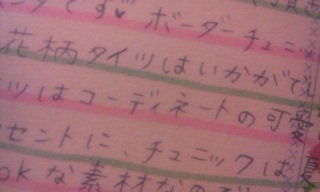 ンタです♥ ボーダーチュニッ
花柄タイツはいかがで
ツはコーディネートの可愛
セントに、チュニックは
okな素材なの